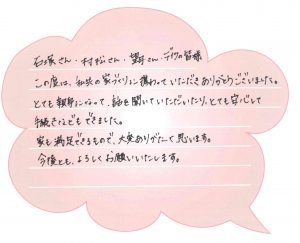 石塚さん・村松さん・望月さん・デイワの皆様
この度は、私共の家づくりに携わっていただきありがとうございました。
とても親身になって、話を聞いていただいたり、とても安心して
手続きなどもできました。
家も満足できるもので、大変ありがたく思います。
今後とも、よろしくお願いいたします。